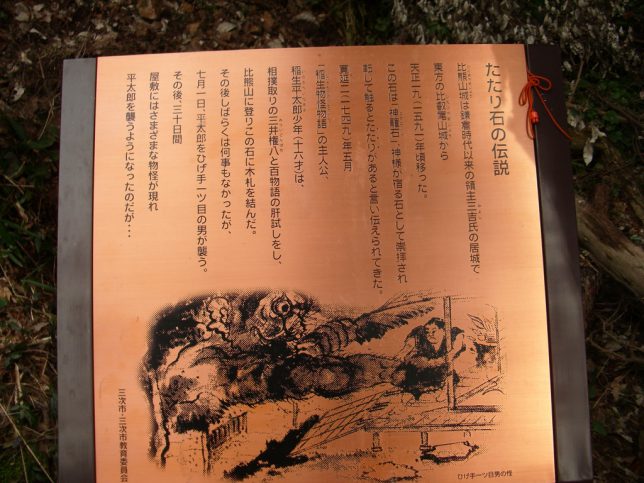 たたり石の伝説
比熊山城は鎌倉時代以来の領主三吉氏の居城で
東方の比叡尾山城から
天正一九(一五九一)年頃移った。
この石は「神籠石」、神様が宿る石として崇拝され
転じて触るとたたりがあると言い伝えられてきた。
寛延二(一七四九)年五月
「稲生物怪物語」の主人公、
稲生平太郎少年(十六才)は、
相撲取りの三井権八と百物語の肝試しをし、
比熊山に登りこの石に木札を結んだ。
その後しばらくは何事もなかったが、
七月一日、平太郎をひげ手一ツ目の男が襲う。
その後、三十日間
屋敷にはさまざまな物怪が現れ
平太郎を襲うようになったのだが・・・
ひげ手一ツ目男の怪
三次市・三次市教育委員会